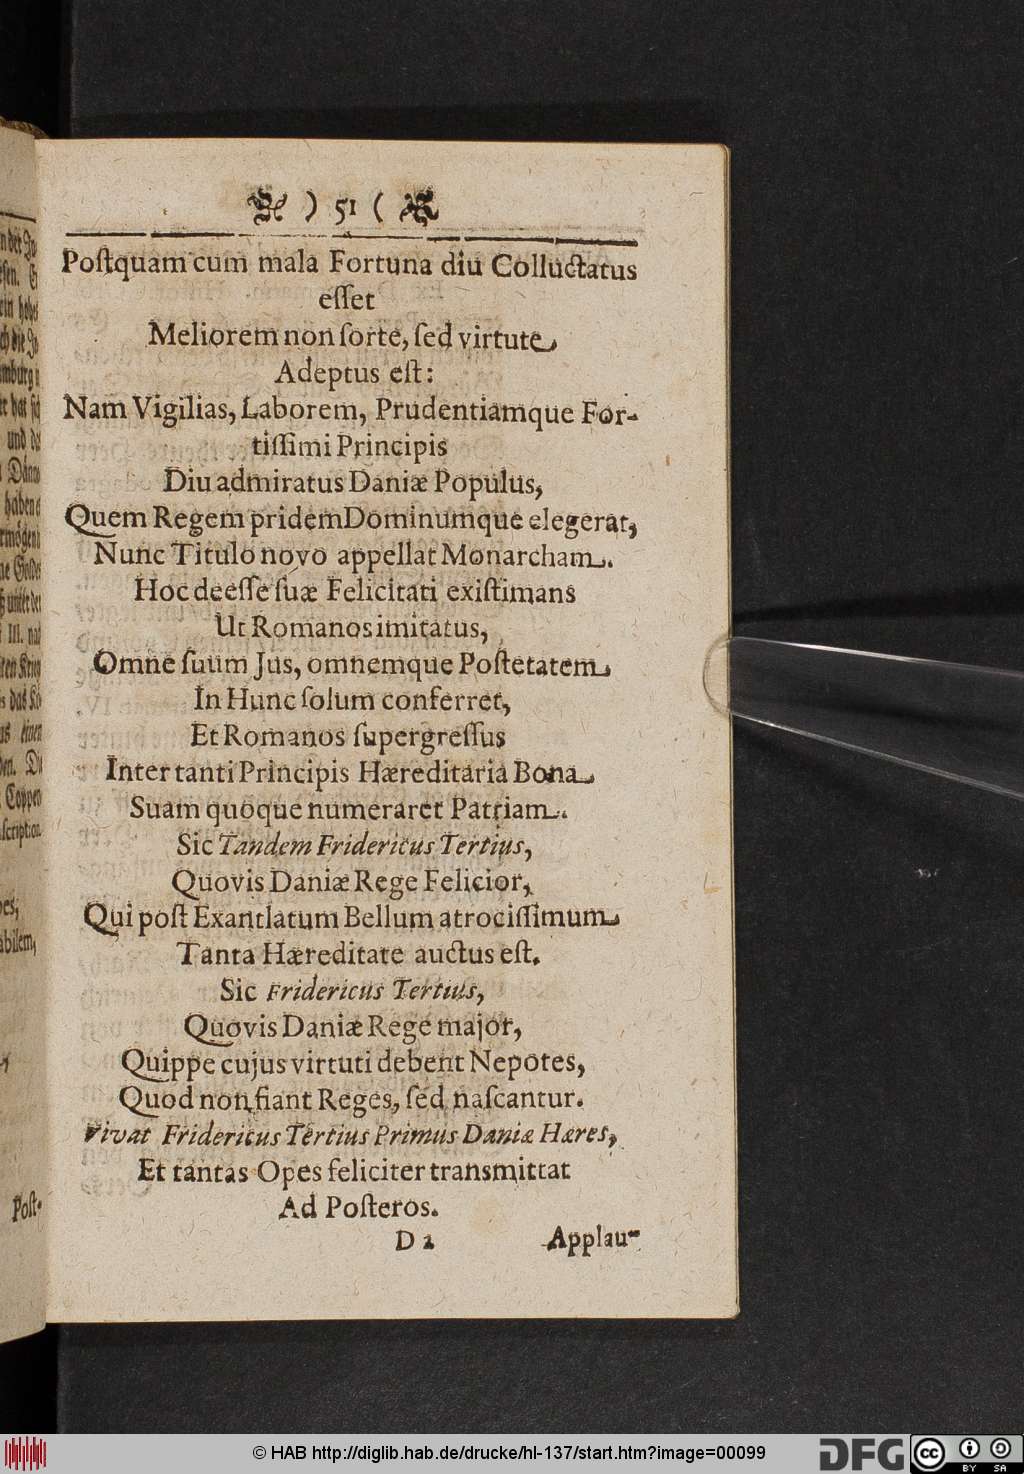 ) 51 (
Poſtquam cum mala Fortuna diu Colluctatus
eſſet
Meliorem non ſorte, ſed virtute
Adeptus eſt:
Nam Vigilias, Laborem, Prudentiamque For-
tiſſimi Principis
Diu admiratus Daniæ Populus,
Quem Regem pridem Dominumque elegerat,
Nunc Titulo novo appellat Monarcham.
Hoc deeſſe ſuæ Felicitati exiſtimans
Ut Romanos imitatus,
Omne ſuum Jus, omnemque Poſtetatem
In Hunc ſolum conferret,
Et Romanos ſupergreſſus
Inter tanti Principis Hæreditaria Bona
Suam quoque numeraret Patriam.
Sic Tandem Fridericus Tertius,
Quovis Daniæ Rege Felicior,
Qui poſt Exantlatum Bellum atrociſſimum
Tanta Hæreditate auctus eſt.
Sic Fridericus Tertius,
Quovis Daniæ Rege major,
Quippe cujus virtuti debent Nepotes,
Quod non fiant Reges, ſed naſcantur.
Vivat Fridericus Tertius Primus Daniæ Hæres,
Et tantas Opes feliciter transmittat
Ad Poſteros.
D 2 Applau-
Poſt-
© HAB http://diglib.hab.de/drucke/hl-137/start.htm?image=00099
DFG
cc BY SA